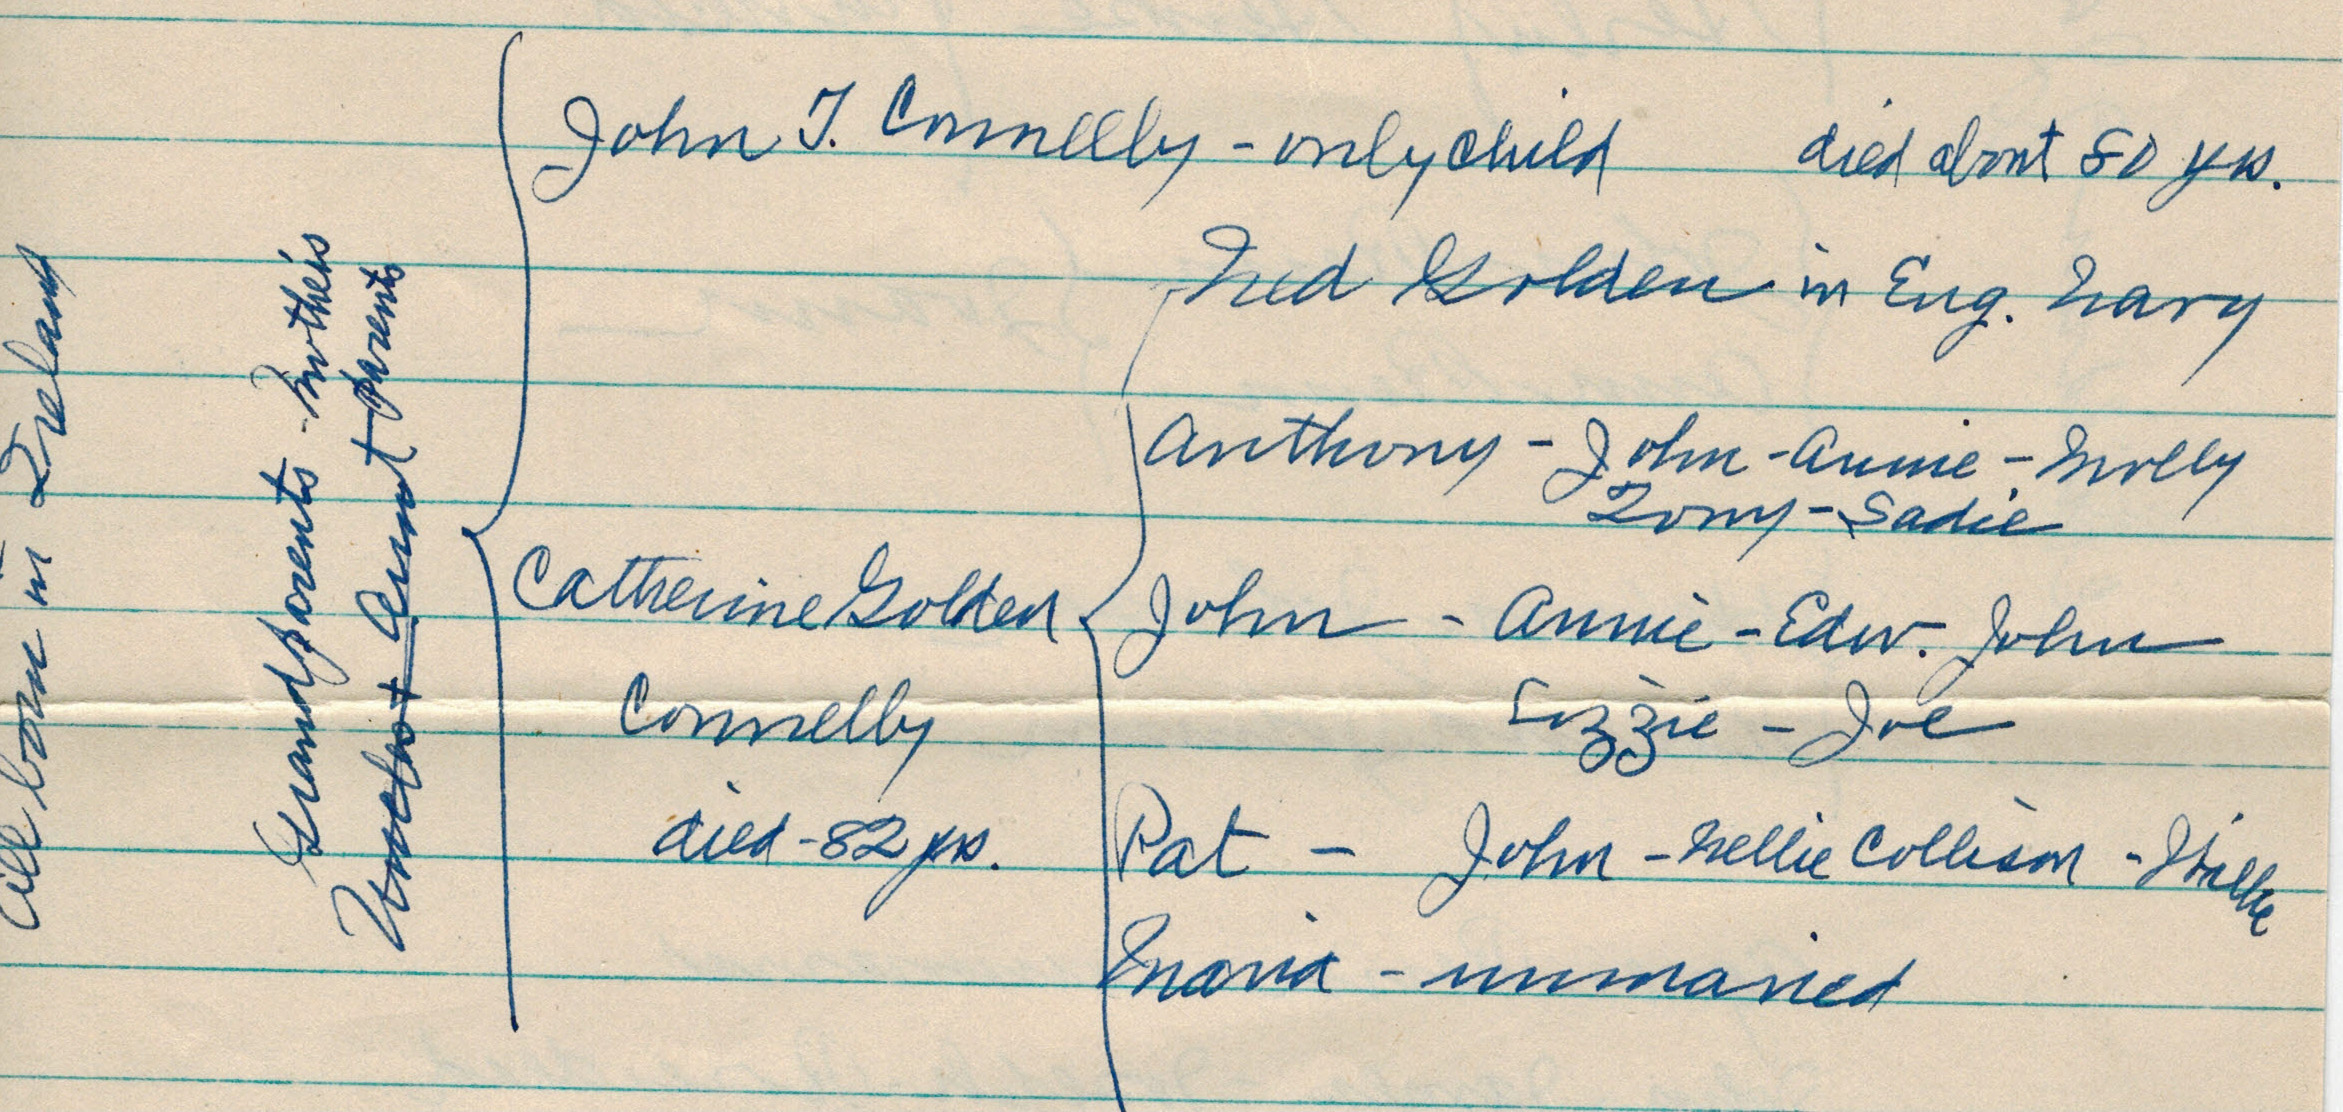 All born in Ireland
Grandparents - Mother's
Aunt parents
John T. Connelly - only child died about 80 yrs.
Ned Golden in Eng. Navy
Anthony - John - Annie - Molly
Tony - Sadie
Catherine Golden
John - Annie - Edw. John
Connelly
Lizzie - Joe
died - 82 yrs.
Pat - John - Nellie Collison - Willie
Maria - unmaried